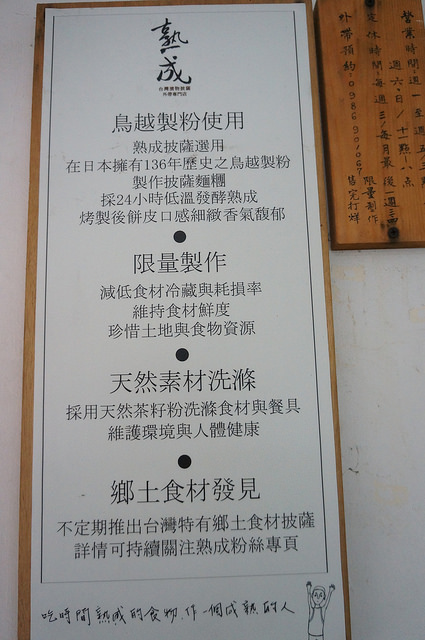 熟成
台灣披薩
外帶專門店
鳥越製粉使用
熟成披薩選用
在日本擁有136年歷史之鳥越製粉
製作披薩麵糰
採24小時低溫發酵熟成
烤製後餅皮口感細緻香氣馥郁
限量製作
減低食材冷藏與耗損率
維持食材鮮度
珍惜土地與食物資源
天然素材洗滌
採用天然茶籽粉洗滌食材與餐具
維護環境與人體健康
鄉土食材發見
不定期推出台灣特有鄉土食材披薩
詳情可持續關注熟成粉絲專頁
吃時間熟成的食物,作一個成熟的人
營業時間:週一至週五
週六、日/十一點~八點
定休時間:每週三/每月最後一週
限量製作
外帶預約:0986901067
售完打烊